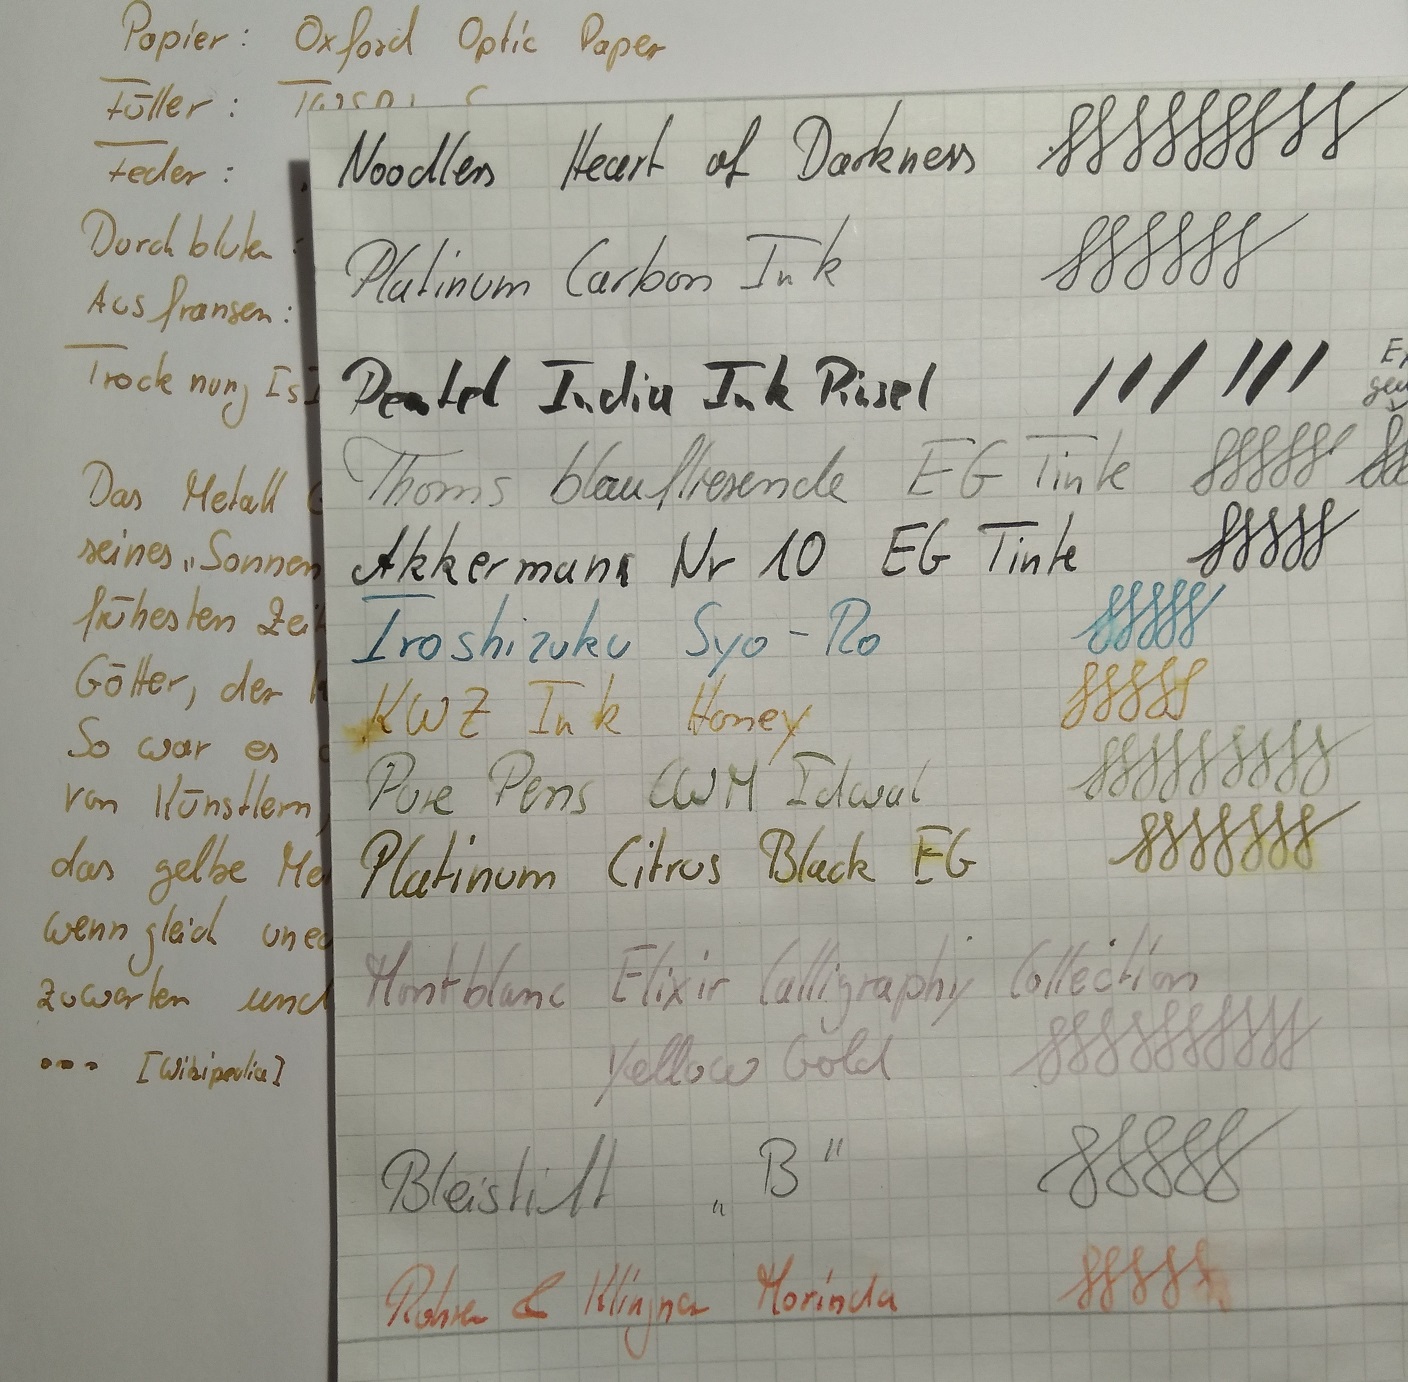 Papier: Oxford Optic Paper
Füller:
Feder:
Durchbluten:
Ausfransen:
Trocknung
Das Metall
seines „Sonnen
frühesten Zei
Götter, der
So war es
von Künstlern,
das gelbe Me
wenngleich uned
zuwarten und
... [Wikipedia]
Noodlers Heart of Darkness
Platinum Carbon Ink
Pentel India Ink Pinsel
Thoms blaufliesende EG Tinte
Akkermann Nr 10 EG Tinte
Iroshizuku Syo-Ro
KWZ Ink Honey
Pure Pens CWM Idwal
Platinum Citrus Black EG
Montblanc Elixir Calligraphy Collection
Yellow Gold
Bleistift „B"
Rohrer & Klingner Morinda